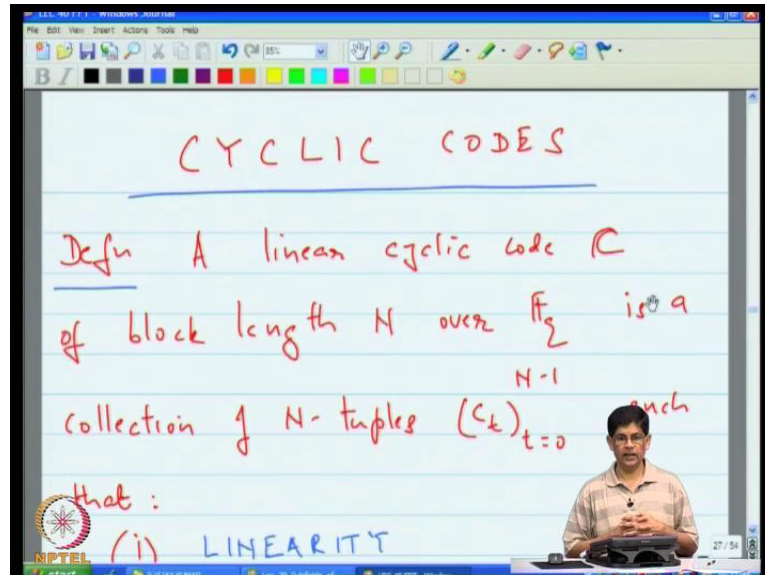 LEC 40 PPT - Windows Journal
File Edit View Insert Actions Tools Help
85%
B I
CYCLIC CODES
Defn A linear cyclic code C
of block length N over F_q is a
collection of N-tuples (C_t)_{t=0}^{N-1} such
that :
(i) LINEARITY
27 / 54
NPTEL
start